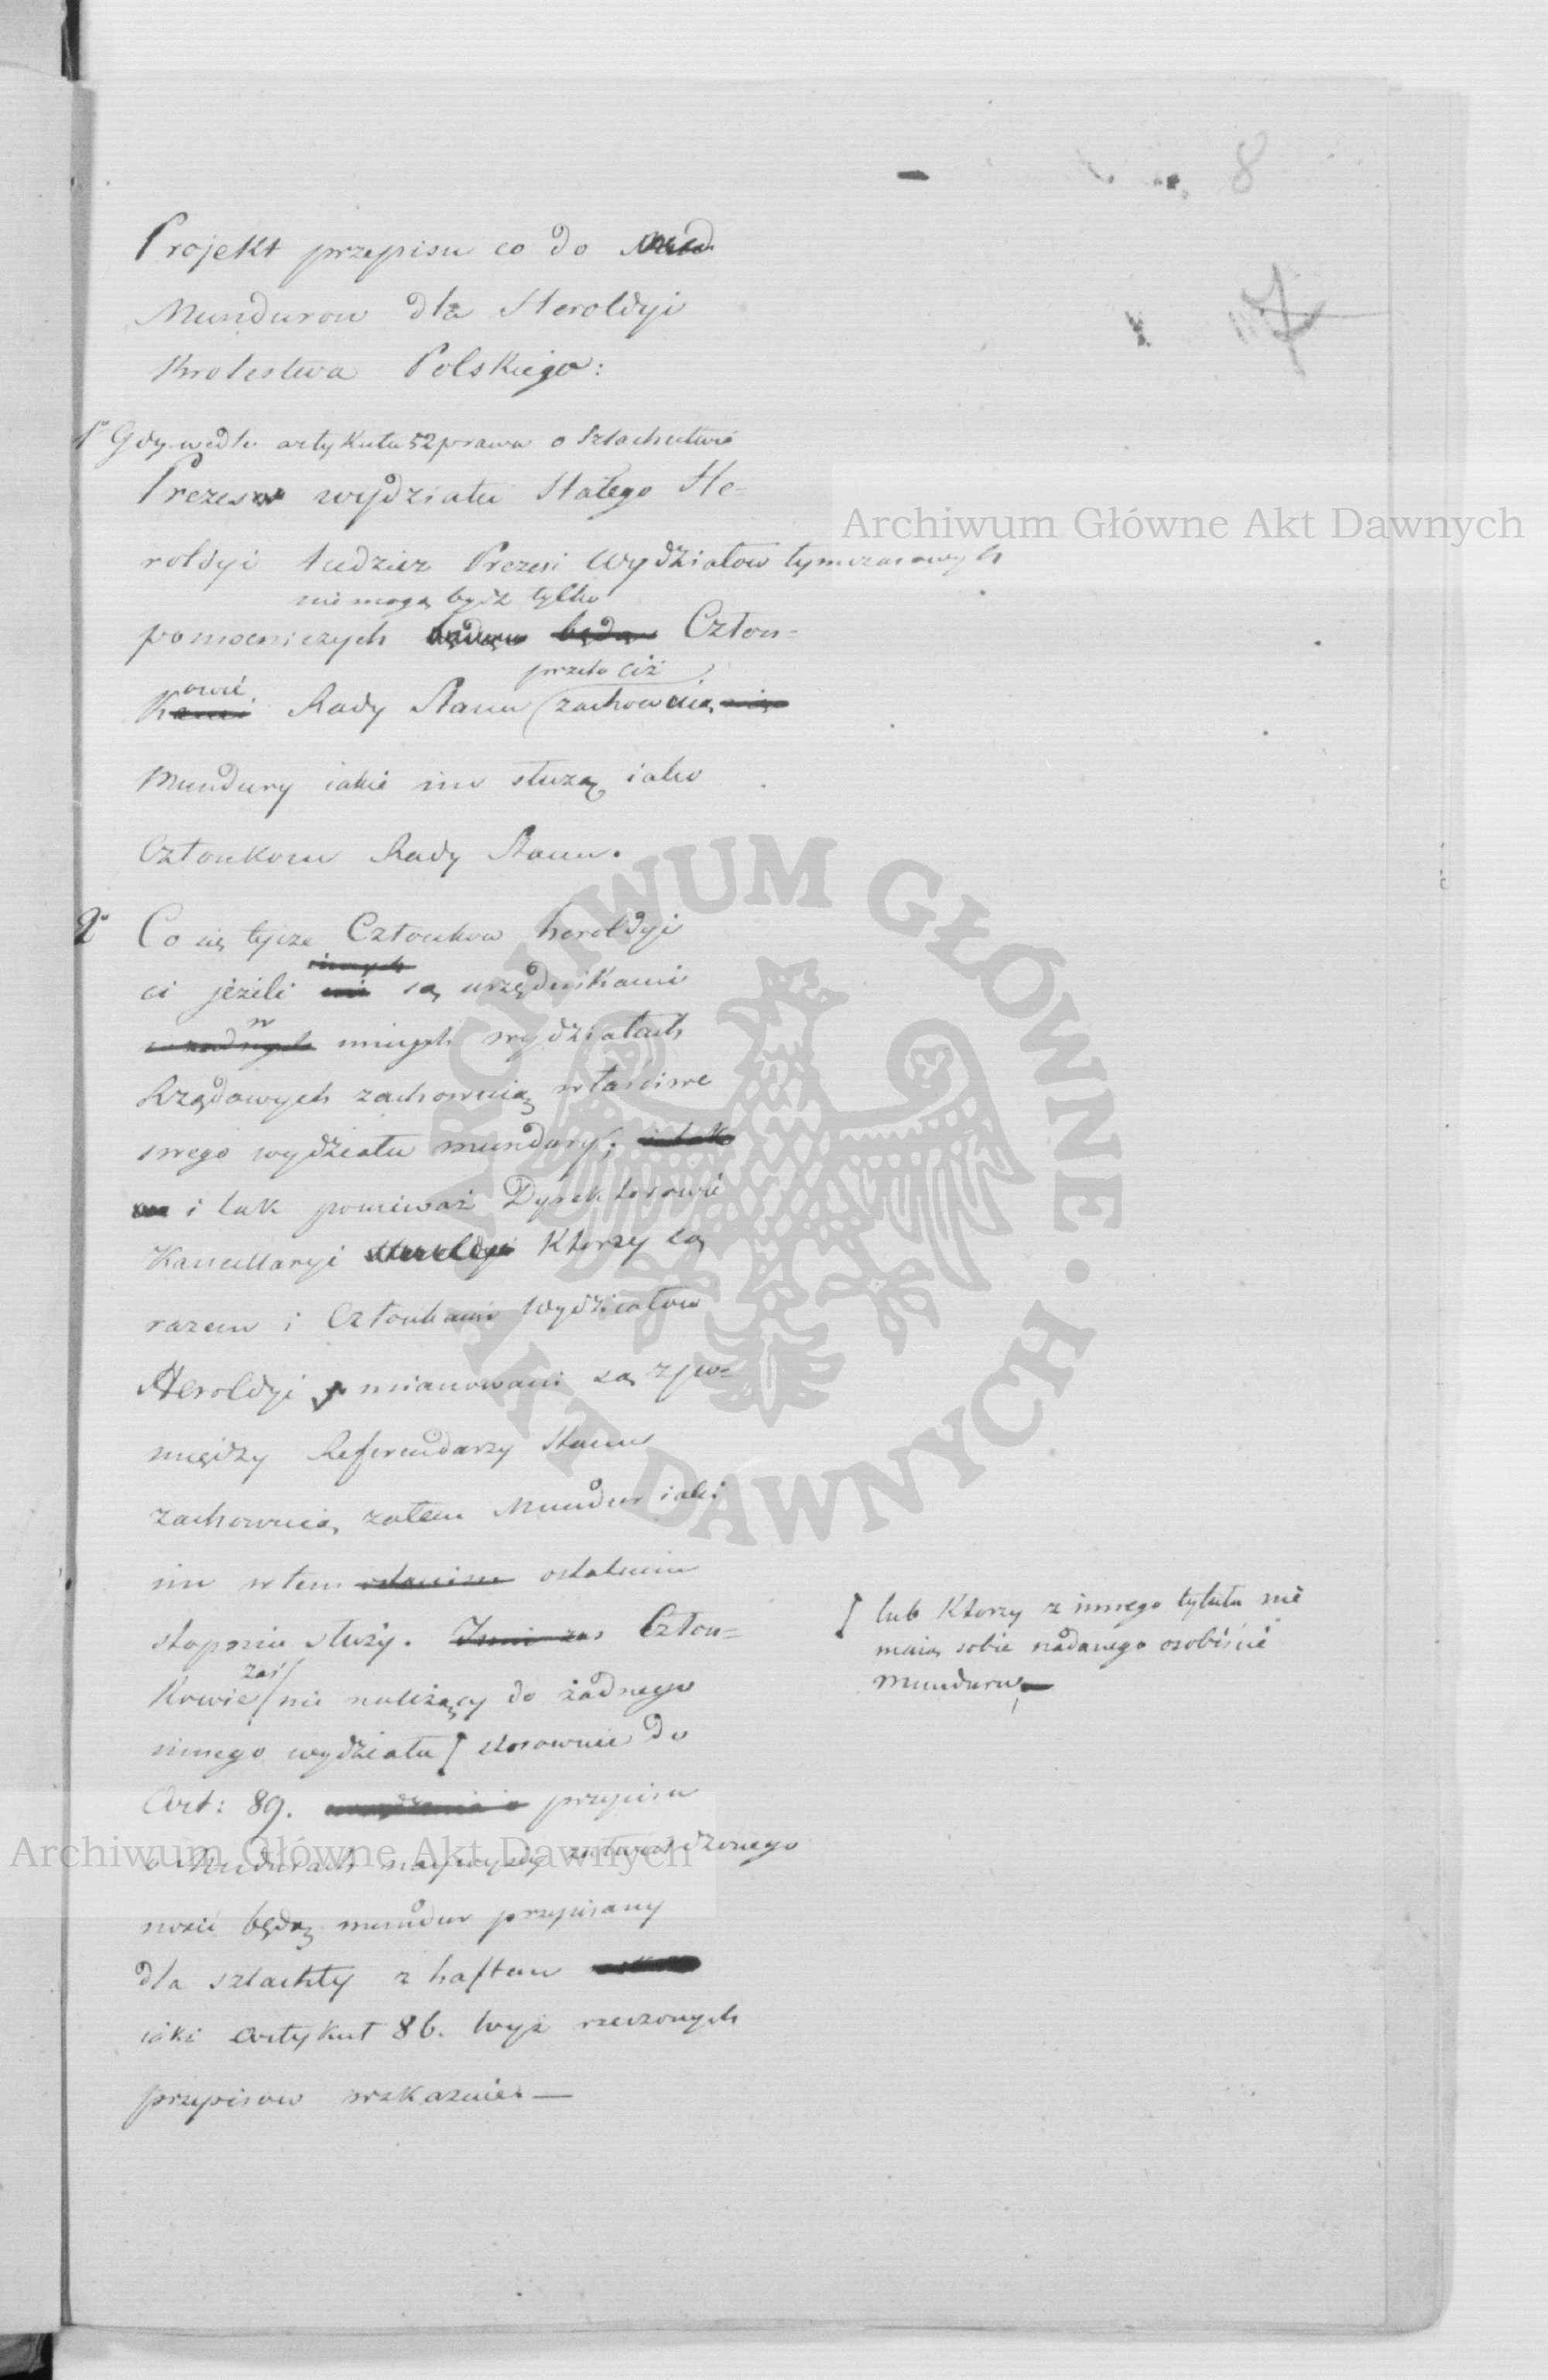 8
7
Projekt przepisu co do
Mundurow dla Heroldyi
Krolestwa Polskiego:
1° Gdy wedle artykułu 52 prawa o Szlachectwie
Prezes wydziału Stałego He-
roldyi tudzież Prezesi Wydziałow tymczasowych
nie mogą bydź tylko
pomocniczych będą Człon-
owie
przeto ciż
Rady Stanu (zachowaią
Mundury iakie im służą iako
Członkom Rady Stanu.
2° Co się tycze Członkow heroldyi
innych
ci jeżeli są urzędnikami
w
innych wydziałach
Rządowych zachowuią właściwe
swego wydziału mundury; i tak
i tak ponieważ Dyrektorowie
Kancellaryi Heroldyi Ktorzy są
razem i Członkami Wydziałow
Heroldyi mianowani są z po-
między Referendarzy Stanu
zachowuią zatem Mundur iaki
im w tem ostatnim
stopniu służy. Inni zas Człon-
zaś
Kowie / nie należący do żadnego
innego wydziału [ stosownie do
[ lub Ktorzy z innego tytułu nie
maią sobie nadanego osobiście
Munduru,
Art: 89. przepisu
o Mudurach naywyżey zatwierdzonego
nosić będą mundur przepisany
dla szlachty z haftem
iaki Artykuł 86. wyż rzeczonych
przepisow wskazuie. —
Archiwum Główne Akt Dawnych
ARCHIWUM GŁÓWNE • AKT DAWNYCH
Archiwum Główne Akt Dawnych